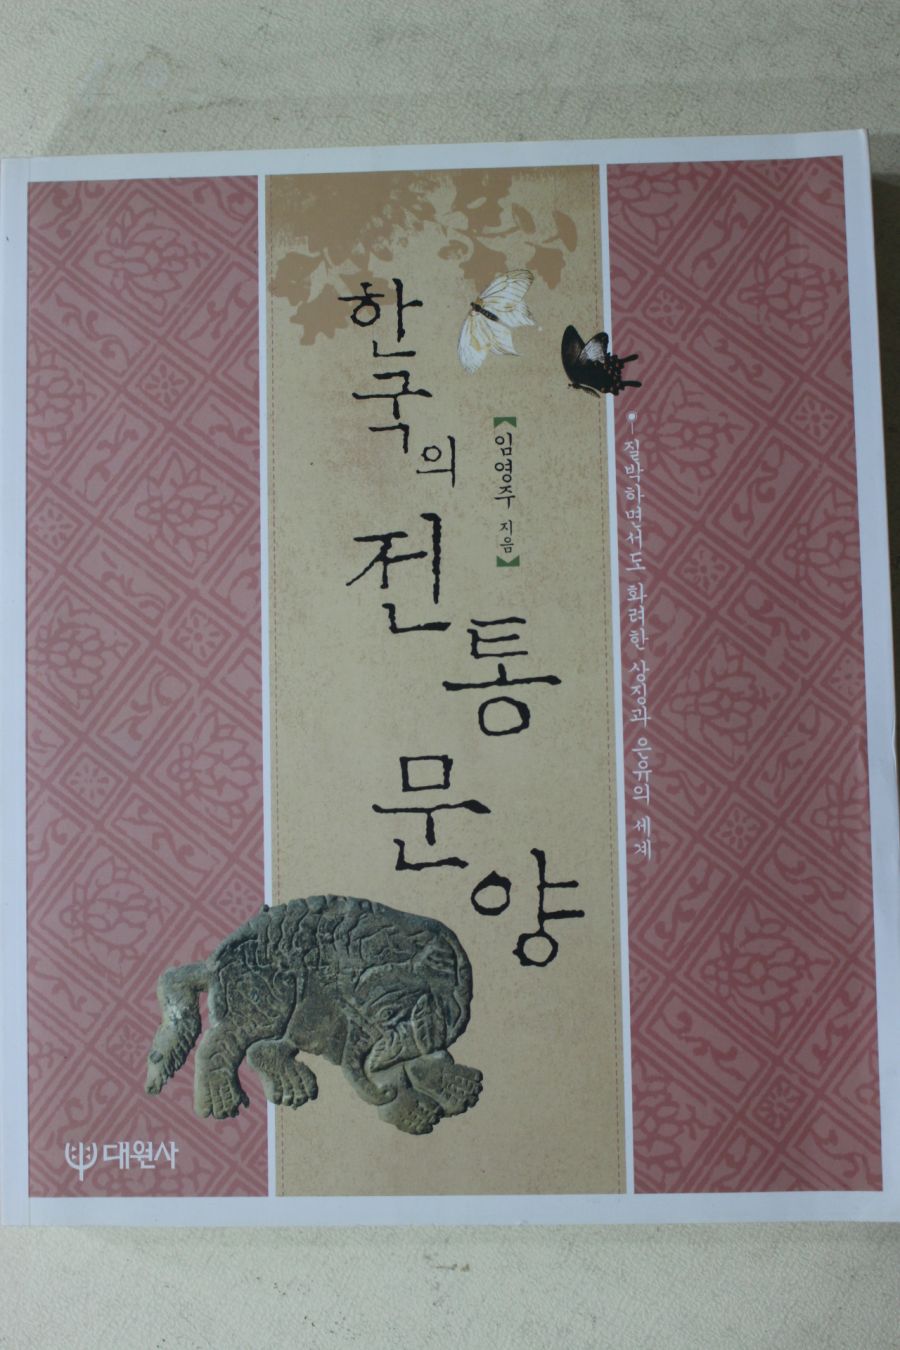 한국의 전통 문양
임영주 지음
질박하면서도 화려한 상징과 은유의 세계
대원사